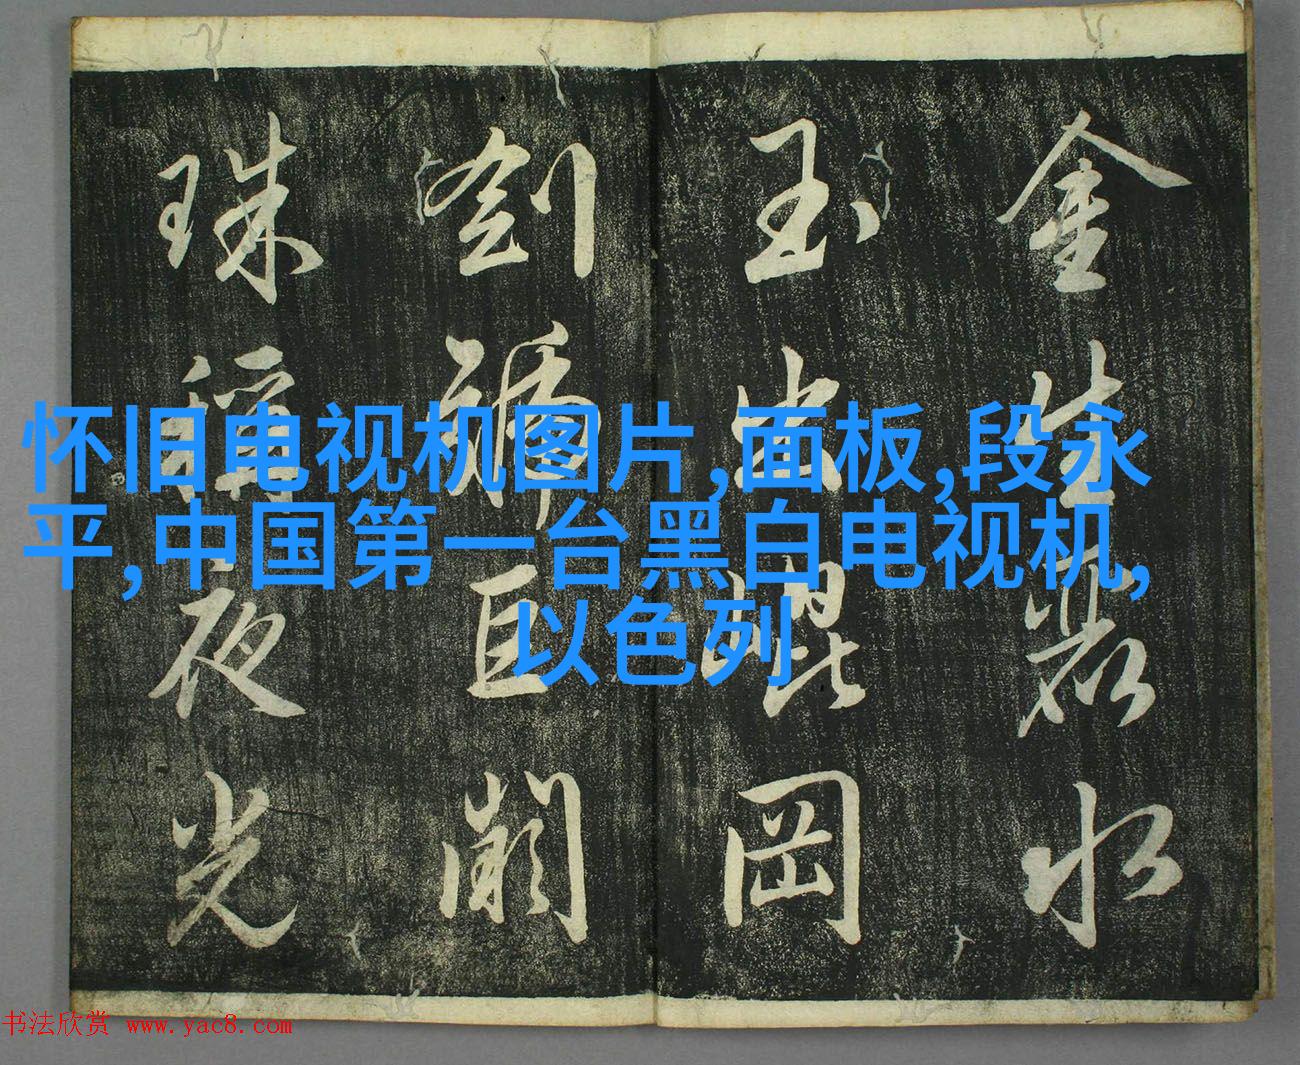 金生麗水
玉出崐岡
劍號巨闕
珠稱夜光
怀旧电视机图片,面板,段永
平,中国第一台黑白电视机,
以色列
书法欣赏 www.yac8.com